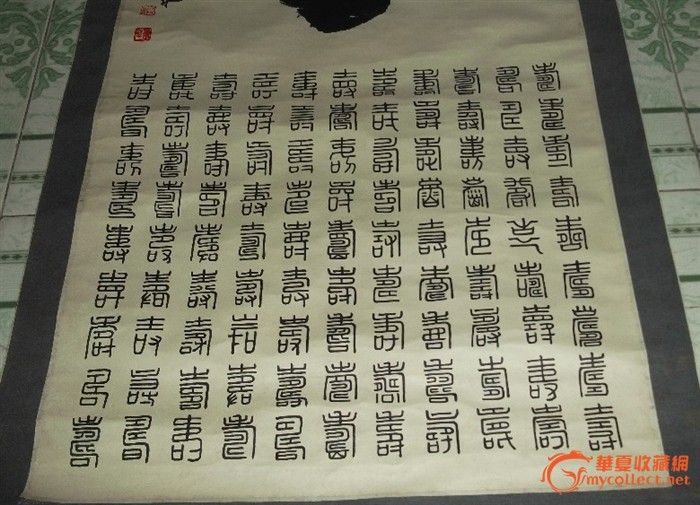 壽壽壽壽壽壽壽壽壽
壽壽壽壽壽壽壽壽壽
壽壽壽壽壽壽壽壽壽
壽壽壽壽壽壽壽壽壽
壽壽壽壽壽壽壽壽壽
壽壽壽壽壽壽壽壽壽
壽壽壽壽壽壽壽壽壽
壽壽壽壽壽壽壽壽壽
壽壽壽壽壽壽壽壽壽
壽壽壽壽壽壽壽壽壽
壽壽壽壽壽壽壽壽壽
華夏收藏網
mycollect.net